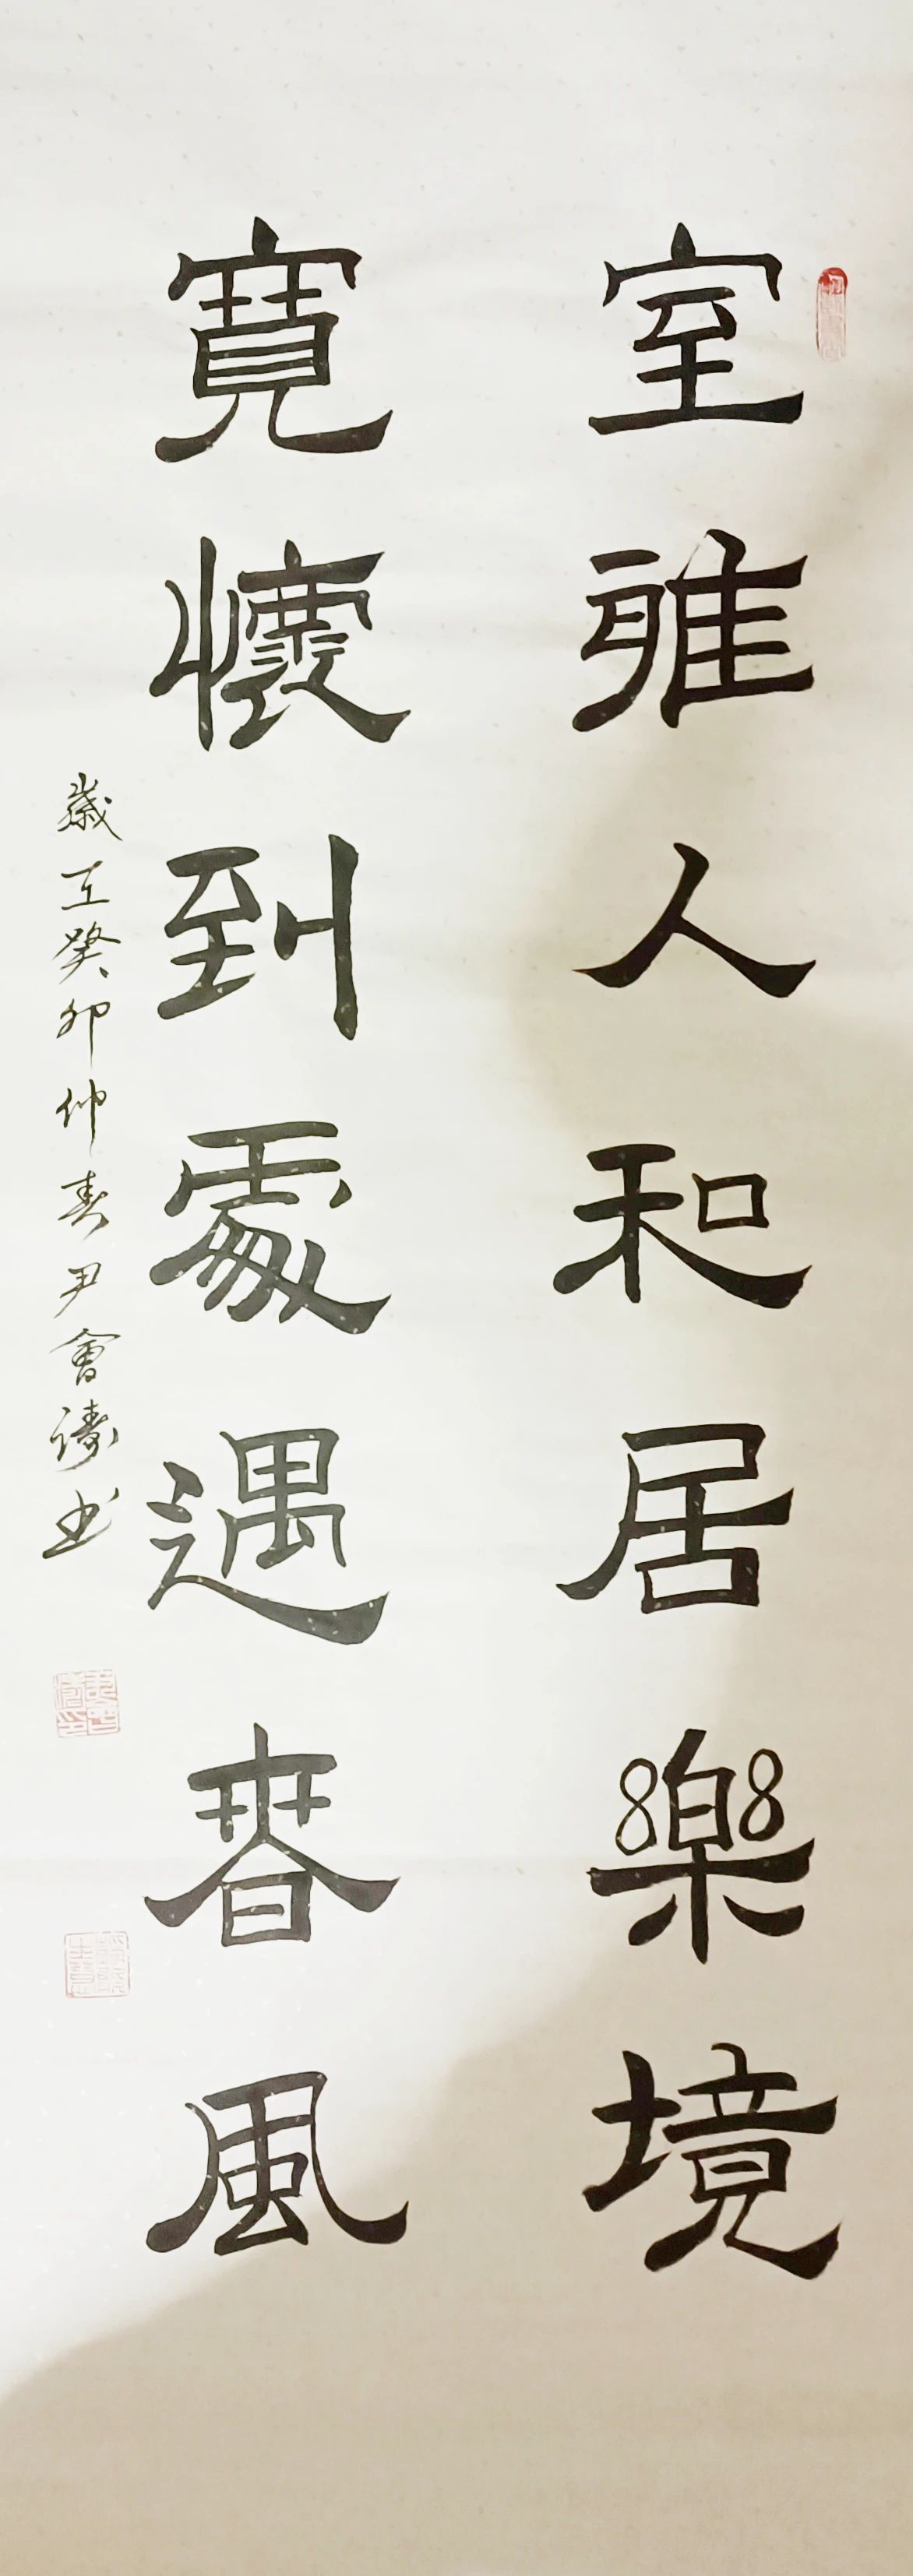 室雅人和居樂境
寬懷到處遇春風
歲在癸卯仲春尹會濤書